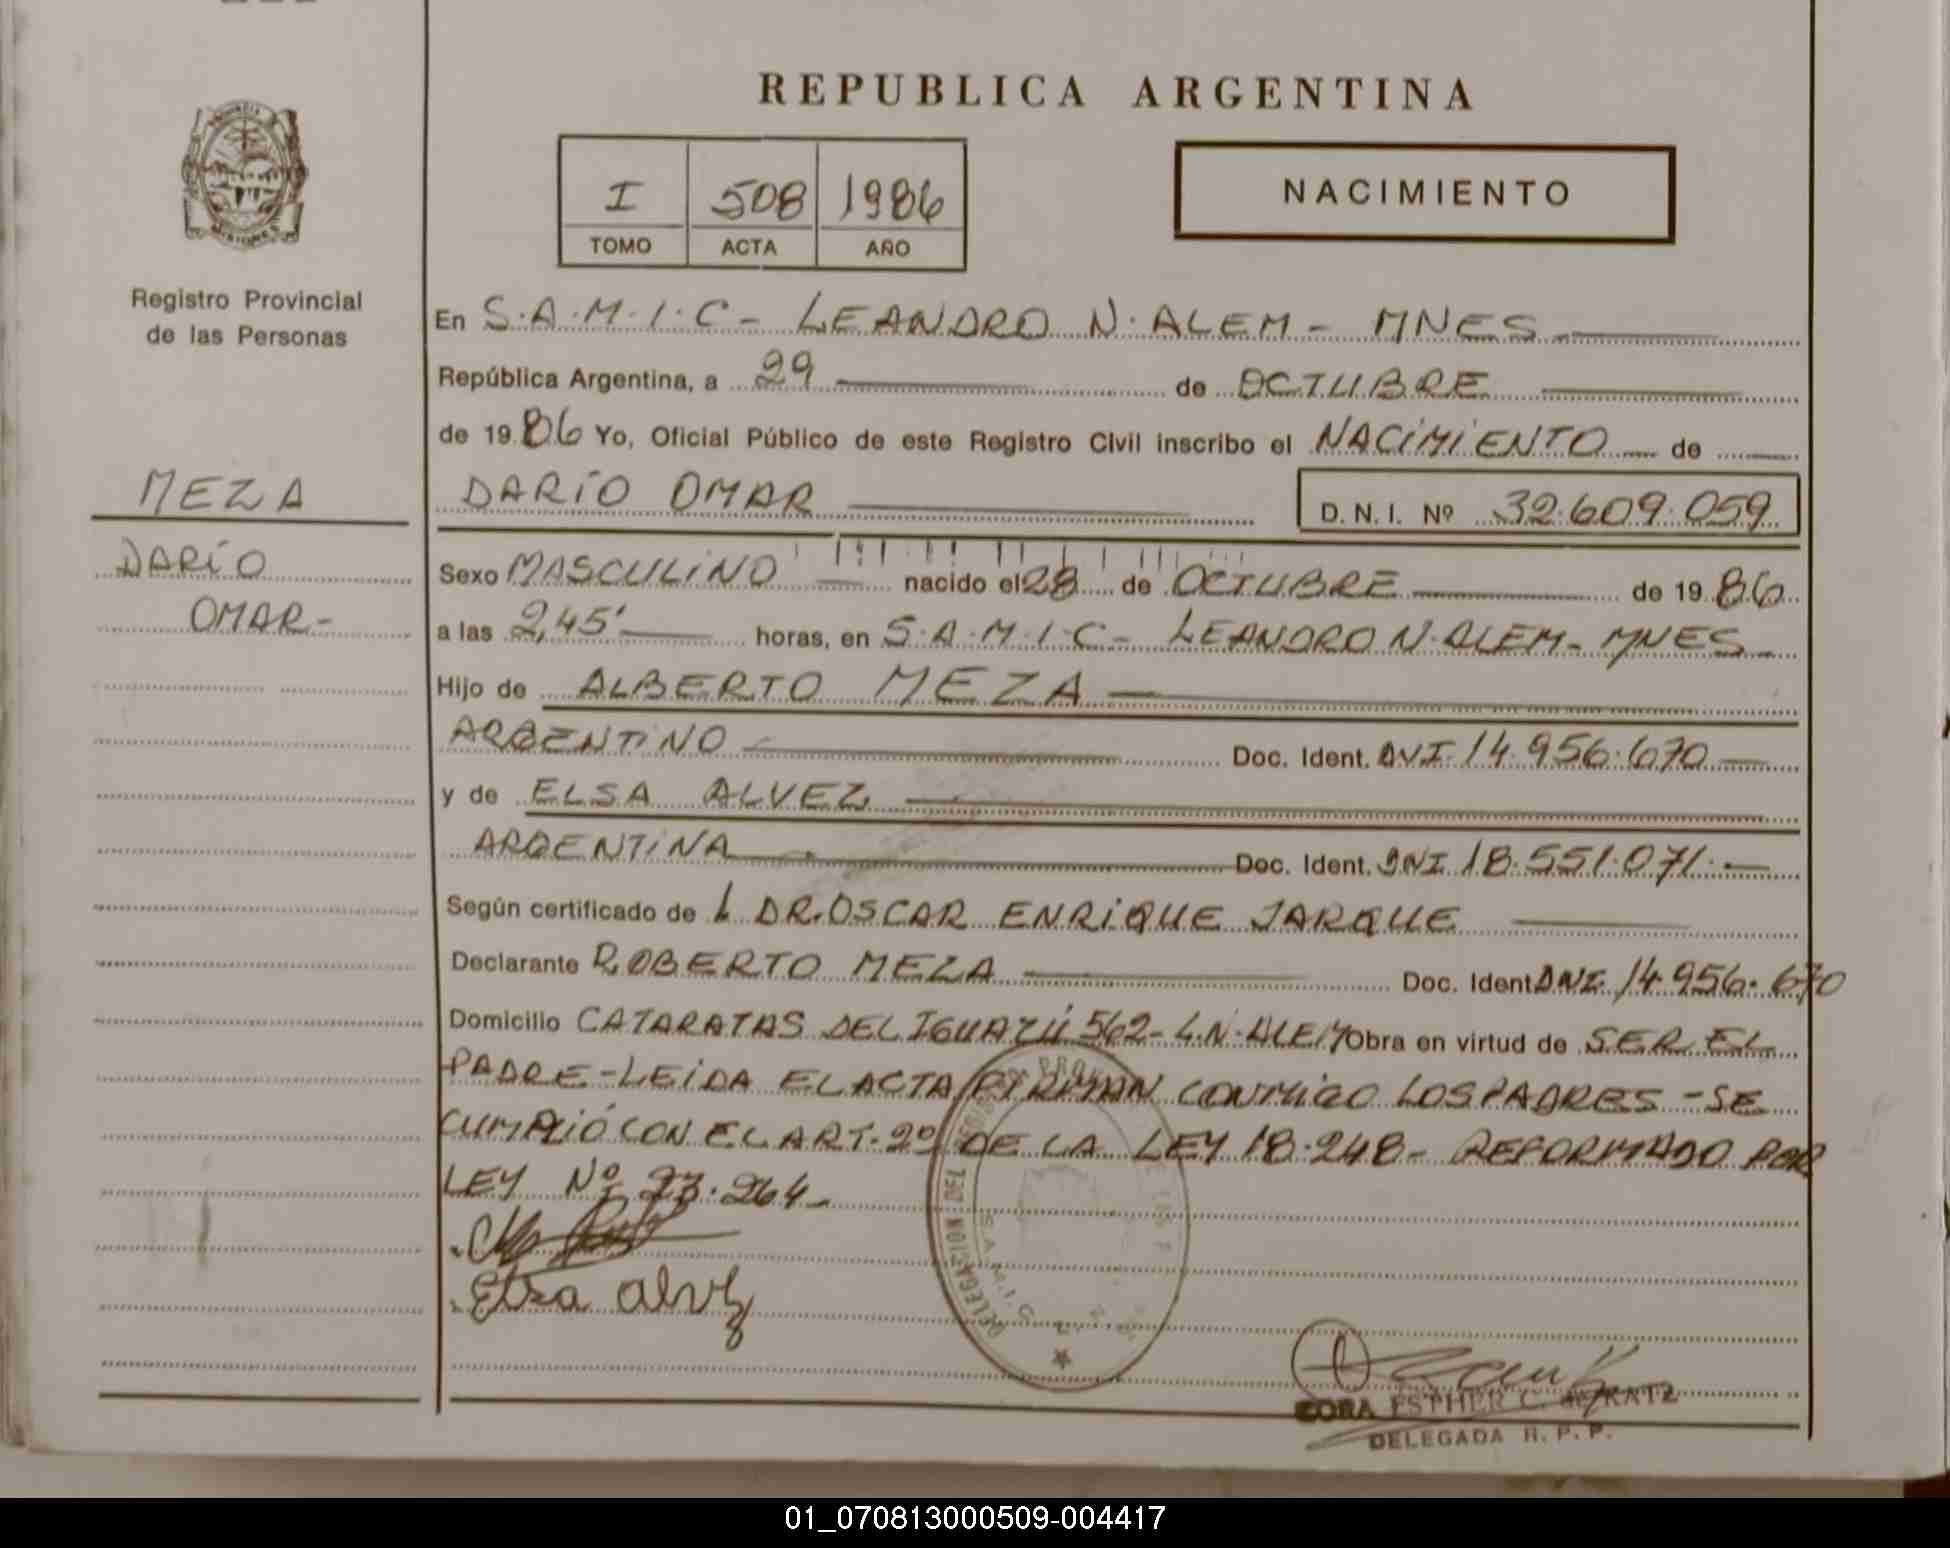 REPUBLICA ARGENTINA
I 508 1986
TOMO ACTA AÑO
NACIMIENTO
Registro Provincial
de las Personas
MEZA
DARÍO
OMAR-
En S.A.M.I.C - LEANDRO N. ALEM - MNES
República Argentina, a 29 de OCTUBRE
de 1986 Yo, Oficial Público de este Registro Civil inscribo el NACIMIENTO de
DARÍO OMAR D. N. I. Nº 32.609.059
Sexo MASCULINO nacido el 28 de OCTUBRE de 1986
a las 2,45' horas, en S.A.M.I.C - LEANDRO N. ALEM - MNES
Hijo de ALBERTO MEZA
ARGENTINO Doc. Ident. DNI. 14.956.670
y de ELSA ALVEZ
ARGENTINA Doc. Ident. DNI 18.551.071.
Según certificado de L DR. OSCAR ENRIQUE JARQUE
Declarante ROBERTO MEZA Doc. Ident DNI. 14.956.670
Domicilio CATARATAS DEL IGUAZÚ 562 - L.N. ALEM Obra en virtud de SER EL
PADRE - LEIDA EL ACTA FIRMAN CONMIGO LOS PADRES - SE
CUMPLIÓ CON EL ART. 2º DE LA LEY 18.248 - REFORMADO POR
LEY Nº 23.264 -
Elsa Alvez
DELEGACION DEL
S.A.M.I.C.
DORA ESTHER C. de KRATZ
DELEGADA R. P. P.
01_070813000509-004417